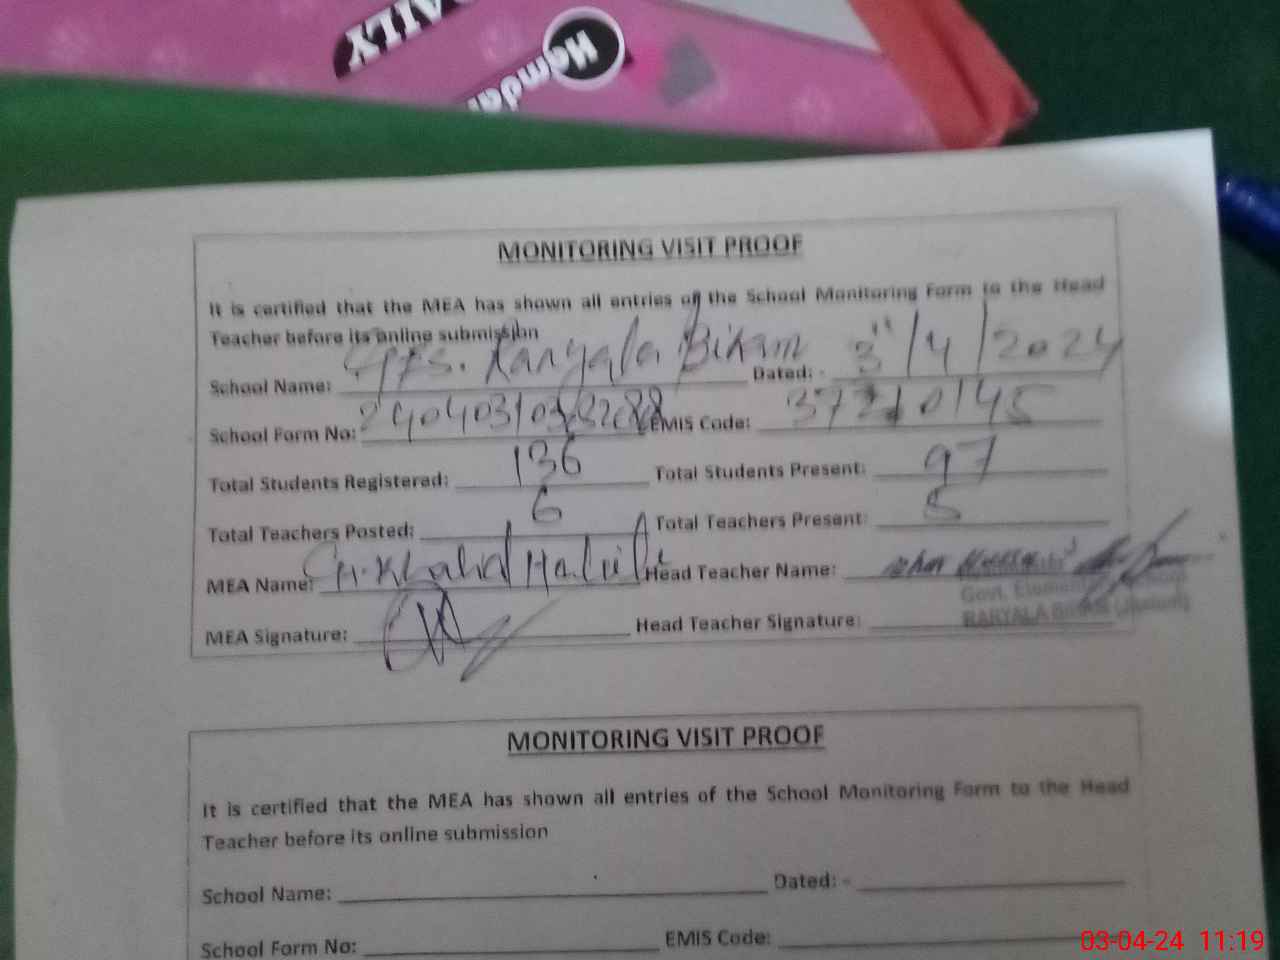 DAILY
Hamdar
MONITORING VISIT PROOF
It is certified that the MEA has shown all entries of the School Monitoring Form to the Head
Teacher before its online submission
School Name: Bikam Dated: - 3/4/2024
School Form No: EMIS Code: 37210145
Total Students Registered: 136 Total Students Present: 97
Total Teachers Posted: 6 Total Teachers Present: 5
MEA Name: Ch. Khalid Head Teacher Name:
Govt.
MEA Signature: Head Teacher Signature: RARYALA
MONITORING VISIT PROOF
It is certified that the MEA has shown all entries of the School Monitoring Form to the Head
Teacher before its online submission
School Name: Dated: -
School Form No: EMIS Code:
03-04-24 11:19